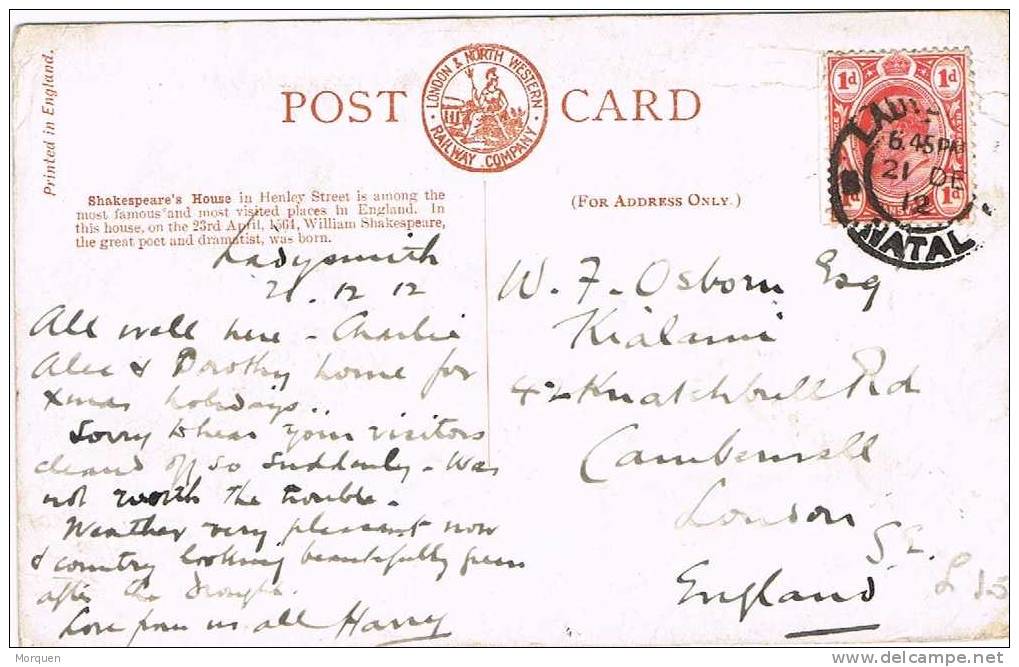 Printed in England.
POST CARD
LONDON & NORTH WESTERN
RAILWAY COMPANY
Shakespeare's House in Henley Street is among the
most famous and most visited places in England. In
this house, on the 23rd April, 1564, William Shakespeare,
the great poet and dramatist, was born.
(FOR ADDRESS ONLY.)
1d 1d
LADY
6.45PM
21 DE
12
1d 1d
NATAL
Ladysmith
21.12.12
All well here - Charlie
Alec & Dorothy home for
Xmas holidays..
Sorry to hear your visitors
cleared off so suddenly - Was
not worth the trouble -
Weather very pleasant now
& country looking beautifully green
after the drought.
Love from us all Harry
W. F. Osborn Esq
Kialami
42 Knatchbull Rd
Camberwell
London
S E.
England
L 15
Morquen
http://www.delcampe.net